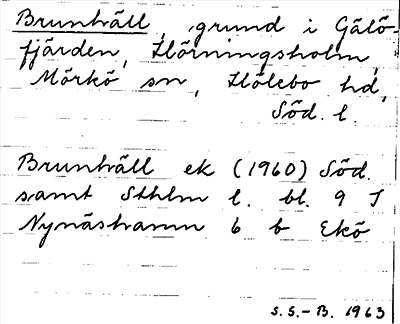 Brunhäll, grund i Gälö-
fjärden, Hörningsholm,
Mörkö sn, Hölebo hd,
Söd. l.
Brunhäll ek (1960) Söd.
samt Sthlm l. bl. 9 I
Nynäshamn 6 b Ekö
S.S.-B. 1963